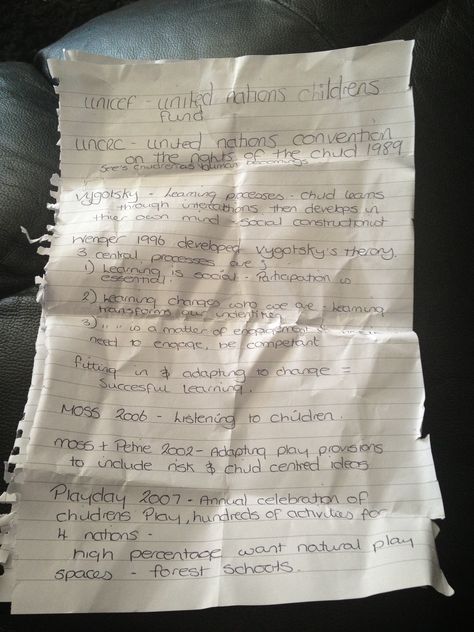 unicef - united nations childrens
fund
UNCRC - united nations convention
on the rights of the child 1989
See's children as human becomings
Vygotsky - Learning processes - child learns
through interactions, then develops in
thier own mind - social constructionist
Wenger 1996 developed Vygotsky's theory.
3 central processes are ;
1) Learning is social - Participation is
essential.
2) Learning changes who we are - learning
transforms our
3) " " is a matter of engagement
need to engage, be competant
fitting in & adapting to change =
succesful learning.
MOSS 2006 - Listening to children.
moss + Petrie 2002 - Adapting play provisions
to include risk & child centred ideas
Playday 2007 - Annual celebration of
childrens Play, hundreds of activities for
4 nations -
high percentage want natural play
spaces - forest schools.